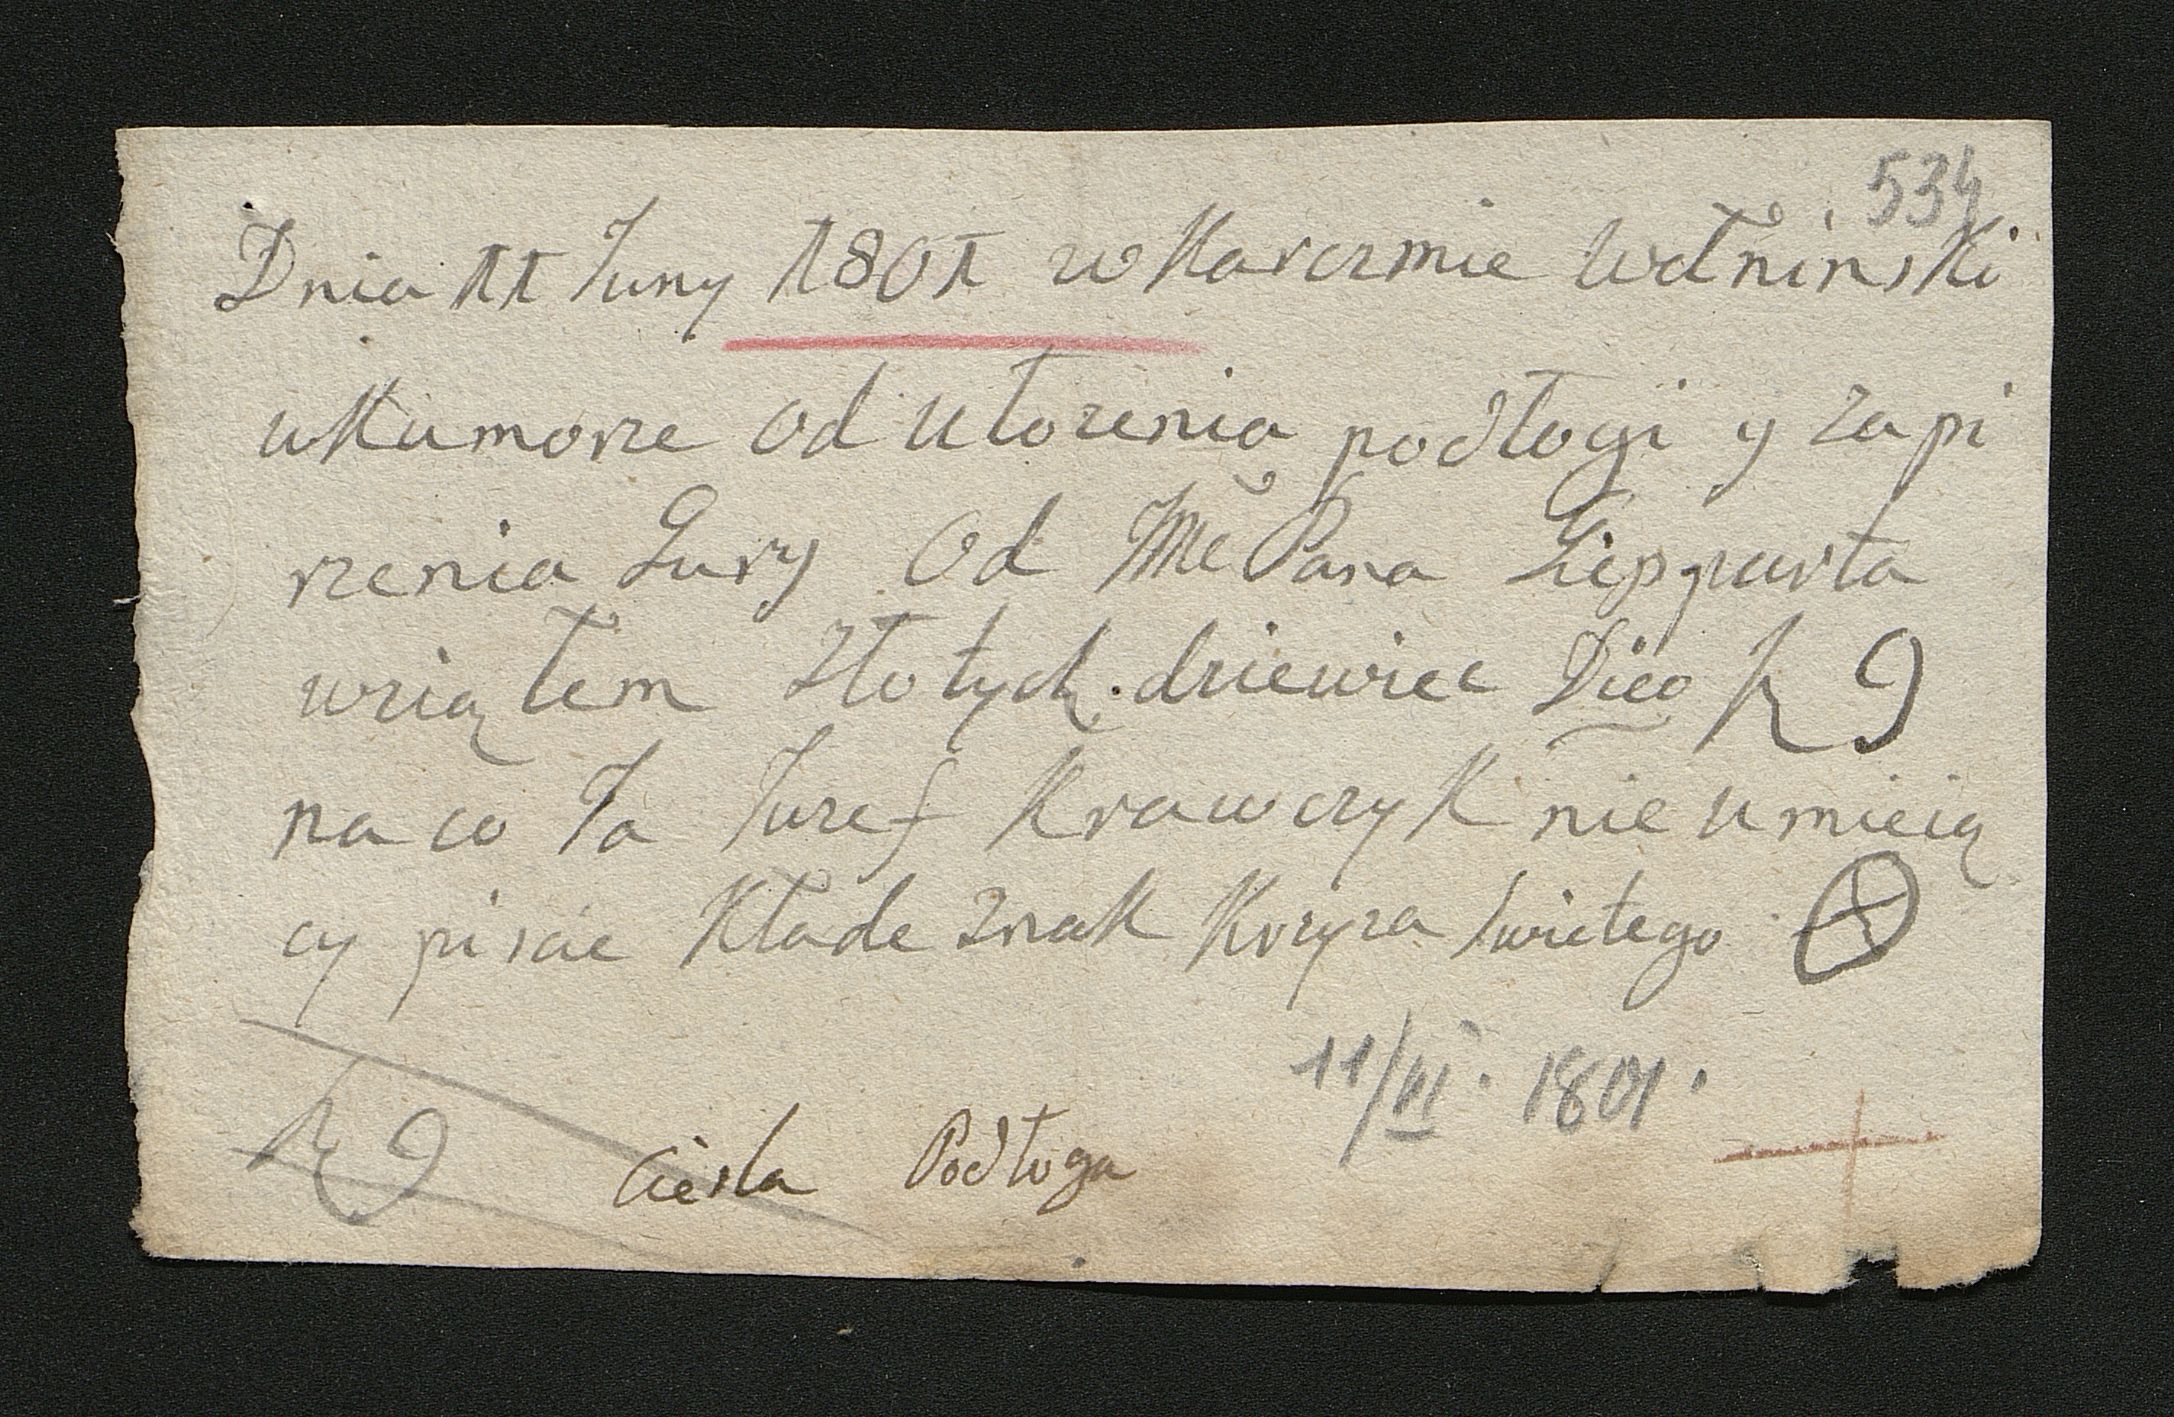 534
Dnia 11 Juny 1801 w Karczmie
w Kumorze od ułozenia podłogi y zapi
rzenia Gury Od JMć Pana Lipparta
wziąłem złotych dziewiec Dico 9
na co Ja Juzef Krawczyk nie umieią
cy pisac Kłade znak Krzyza swietego
11/VI. 1801.
9
Ciesla Podłoga